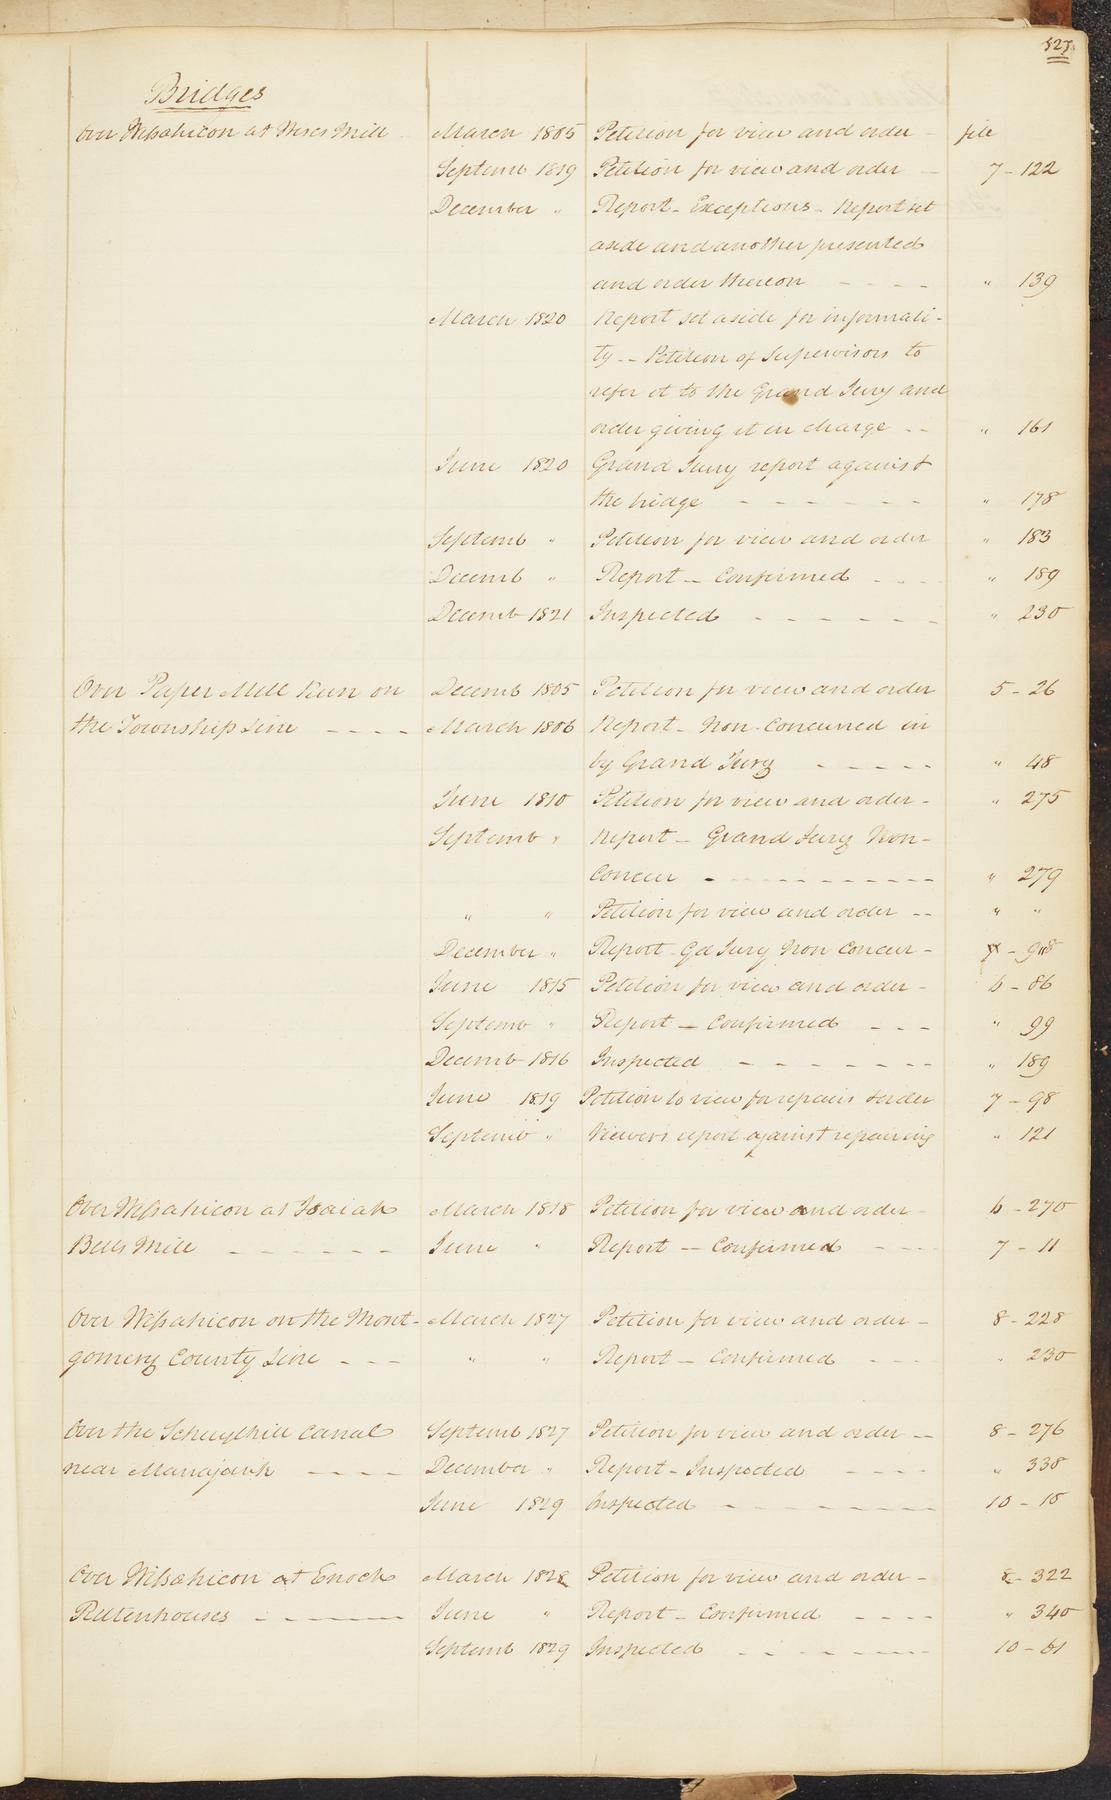 527
Bridges
Over Wissahicon at Wises Mill March 1805 Petition for view and order - file
Septemb 1819 Petition for view and order - 7 - 122
December " Report - Exceptions - Report set
aside and another presented
and order thereon - - - - " 139
March 1820 Report set aside for informali-
ty -- Petition of Supervisors to
refer it to the Grand Jury and
order giving it in charge -- " 161
June 1820 Grand Jury report against
the bridge - - - - - - " 178
Septemb " Petition for view and order " 183
Decemb " Report - Confirmed - - - " 189
Decemb 1821 Inspected - - - - - - " 230
Over Paper Mill Run on Decemb 1805 Petition for view and order 5 - 26
the Township Line - - - - March 1806 Report - Non-Concurred in
by Grand Jury - - - - - " 48
June 1810 Petition for view and order - " 275
Septemb " Report - Grand Jury Non-
Concur - - - - - - - - - " 279
" " Petition for view and order -- " "
December " Report - Gd Jury Non Concur -
June 1815 Petition for view and order - 6 - 86
Septemb " Report - Confirmed - - - " 99
Decemb 1816 Inspected - - - - - - - " 189
June 1819 Petition to view for repairs & order 7 - 98
Septemb " Viewers report against repairing " 121
Over Wissahicon at Isaiah March 1818 Petition for view and order - 6 - 270
Bells Mill - - - - - - June " Report - Confirmed - - - 7 - 11
Over Wissahicon on the Mont- March 1827 Petition for view and order - 8 - 228
gomery County Line - - - " " Report - Confirmed - - - " 230
Over the Schuylkill Canal Septemb 1827 Petition for view and order -- 8 - 276
near Manayunk - - - - December " Report - Inspected - - - - " 338
June 1829 Inspected - - - - - - - - 10 - 15
Over Wissahicon at Enoch March 1828 Petition for view and order - 8 - 322
Rittenhouses - - - - - June " Report - Confirmed - - - - " 340
Septemb 1829 Inspected - - - - - - 10 - 61